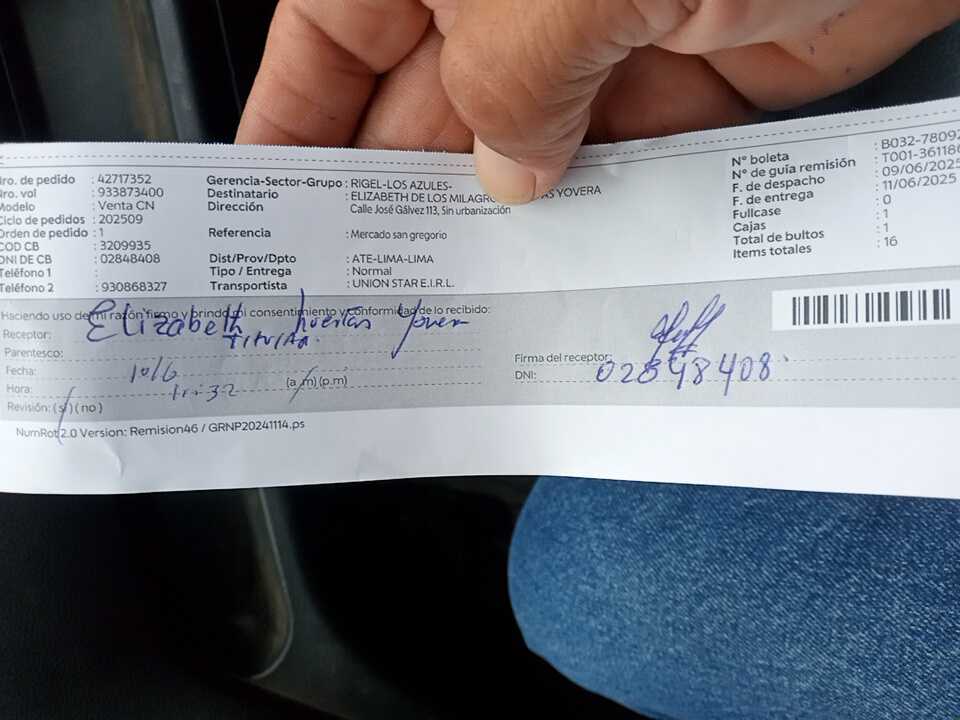 Nro. de pedido : 42717352
Nro. vol : 933873400
Modelo : Venta CN
Ciclo de pedidos : 202509
Orden de pedido : 1
COD CB : 3209935
DNI DE CB : 02848408
Teléfono 1 :
Teléfono 2 : 930868327
Gerencia-Sector-Grupo : RIGEL-LOS AZULES-
Destinatario : ELIZABETH DE LOS MILAGRO AS YOVERA
Dirección Calle José Gálvez 113, Sin urbanización
Referencia : Mercado san gregorio
Dist/Prov/Dpto : ATE-LIMA-LIMA
Tipo / Entrega : Normal
Transportista : UNION STAR E.I.R.L.
N° boleta : B032-78092
N° de guía remisión : T001-361186
F. de despacho : 09/06/2025
F. de entrega : 11/06/2025
Fullcase : 0
Cajas : 1
Total de bultos : 1
Items totales : 16
Haciendo uso de mi razón firmo y brindo mi consentimiento y conformidad de lo recibido:
Receptor: Elizabeth huertas Yovera
Parentesco: TITULAR.
Fecha: 10/6
Hora: 11:32 (a.m)(p.m)
Revisión: (si)(no)
Firma del receptor:
DNI: 02848408
NumRot 2.0 Version: Remision46 / GRNP20241114.ps